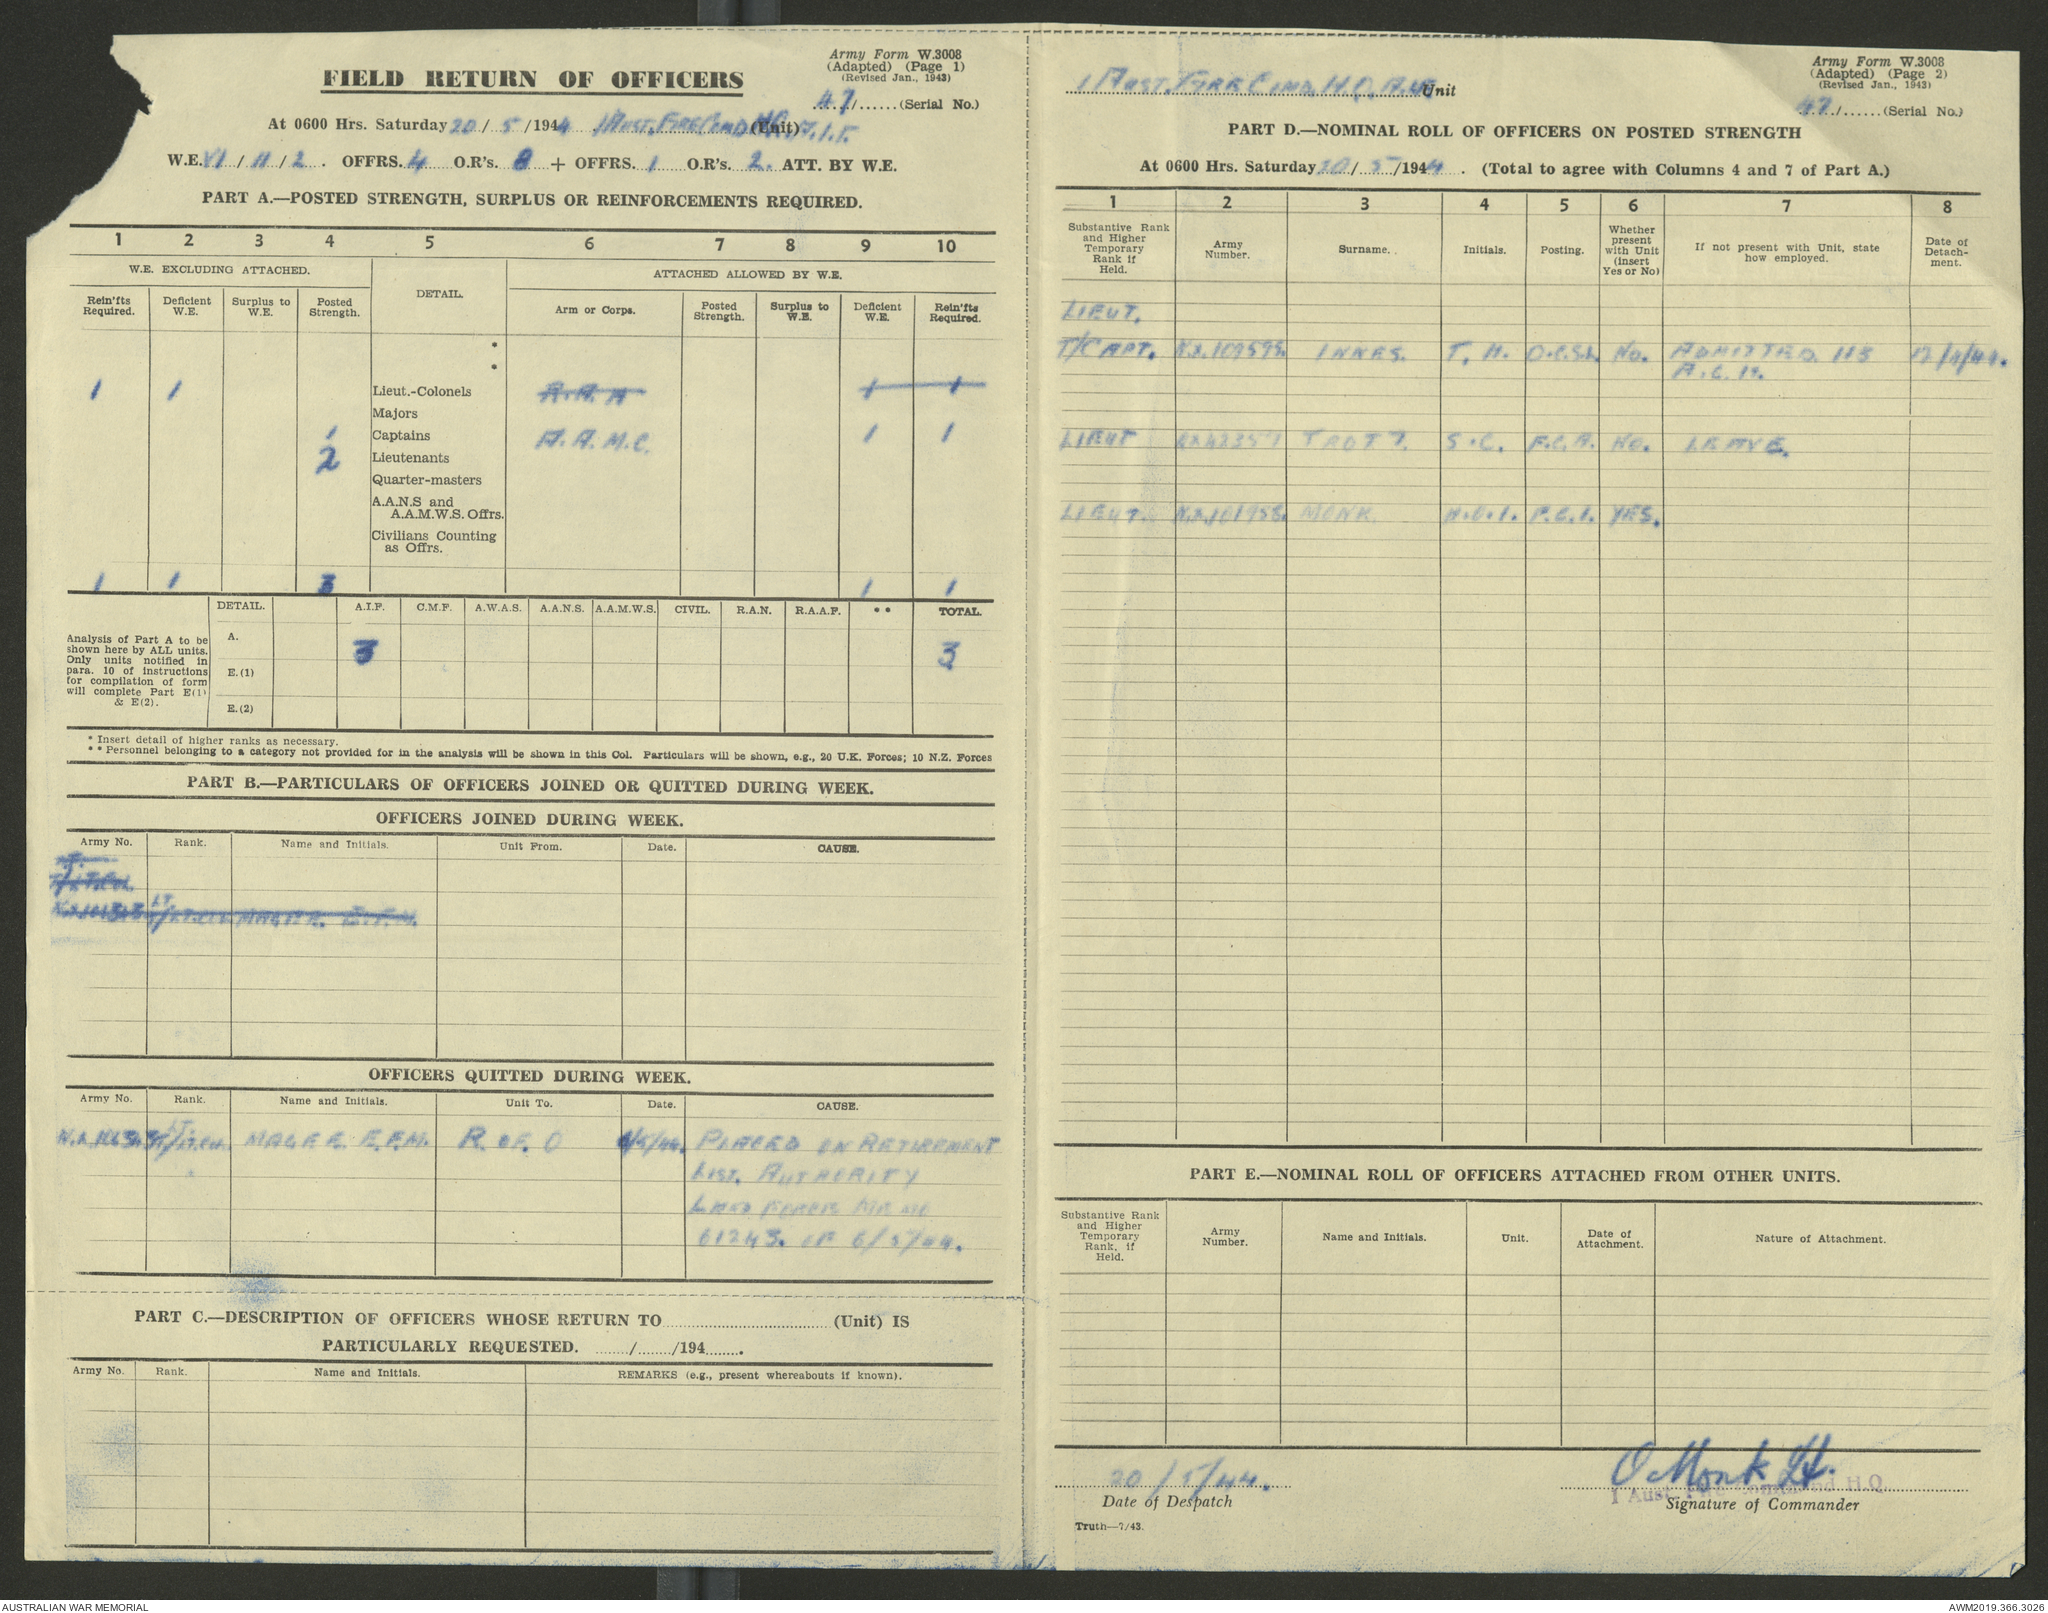 Army Form W.3008
(Adapted) (Page 1)
(Revised Jan., 1943)
FIELD RETURN OF OFFICERS
47/......(Serial No.)
At 0600 Hrs. Saturday 20/5/1944 1 Aust. Fire Comd HQ. A.I.F. (Unit)
W.E. VI/11/2. OFFRS. 4 O.R's. 8 + OFFRS. 1 O.R's. 2. ATT. BY W.E.
PART A.—POSTED STRENGTH, SURPLUS OR REINFORCEMENTS REQUIRED.
1 2 3 4 5 6 7 8 9 10
W.E. EXCLUDING ATTACHED. DETAIL. ATTACHED ALLOWED BY W.E.
Rein'fts Required. Deficient W.E. Surplus to W.E. Posted Strength. Arm or Corps. Posted Strength. Surplus to W.E. Deficient W.E. Rein'fts Required.
*
*
1 1 Lieut.-Colonels A.A. 1 1
Majors
1 Captains A.A.M.C. 1 1
2 Lieutenants
Quarter-masters
A.A.N.S and
A.A.M.W.S. Offrs.
Civilians Counting
as Offrs.
1 1 3 1 1
DETAIL. A.I.F. C.M.F. A.W.A.S. A.A.N.S. A.A.M.W.S. CIVIL. R.A.N. R.A.A.F. ** TOTAL.
Analysis of Part A to be
shown here by ALL units.
Only units notified in
para. 10 of instructions
for compilation of form
will complete Part E(1)
& E(2).
A. 3 3
E.(1)
E.(2)
* Insert detail of higher ranks as necessary.
** Personnel belonging to a category not provided for in the analysis will be shown in this Col. Particulars will be shown, e.g., 20 U.K. Forces; 10 N.Z. Forces
PART B.—PARTICULARS OF OFFICERS JOINED OR QUITTED DURING WEEK.
OFFICERS JOINED DURING WEEK.
Army No. Rank. Name and Initials. Unit From. Date. CAUSE.
T/LT.COL
LT. T/LT.COL MAGEE. E.F.M.
OFFICERS QUITTED DURING WEEK.
Army No. Rank. Name and Initials. Unit To. Date. CAUSE.
LT. T/LT.COL. MAGEE E.F.M. R OF O 6/5/44. PLACED ON RETIREMENT
LIST. AUTHORITY
LAND FORCES
61243. OF 6/5/44.
PART C.—DESCRIPTION OF OFFICERS WHOSE RETURN TO ................ (Unit) IS
PARTICULARLY REQUESTED. ......./......./194.......
Army No. Rank. Name and Initials. REMARKS (e.g., present whereabouts if known).
Army Form W.3008
(Adapted) (Page 2)
(Revised Jan., 1943)
1 Aust. Fire Comd. H.Q. Unit
47/......(Serial No.)
PART D.—NOMINAL ROLL OF OFFICERS ON POSTED STRENGTH
At 0600 Hrs. Saturday 20/5/1944. (Total to agree with Columns 4 and 7 of Part A.)
1 2 3 4 5 6 7 8
Substantive Rank and Higher Temporary Rank if Held. Army Number. Surname. Initials. Posting. Whether present with Unit (insert Yes or No) If not present with Unit, state how employed. Date of Detachment.
LIEUT.
T/CAPT. NX.109595. INNES. T.H. No. ADMITTED 113 17/4/44.
A.G.H.
LIEUT QX42357 TROTT. S.C. F.C.A. No. LEAVE.
LIEUT. NX.101958. MONK. H.O.I. F.C.I. YES.
PART E.—NOMINAL ROLL OF OFFICERS ATTACHED FROM OTHER UNITS.
Substantive Rank and Higher Temporary Rank, if Held. Army Number. Name and Initials. Unit. Date of Attachment. Nature of Attachment.
20/5/44. O Monk Lt.
1 Aust. Fire Command H.Q.
Date of Despatch Signature of Commander
Truth—7/43.
AUSTRALIAN WAR MEMORIAL AWM2019.366.3026